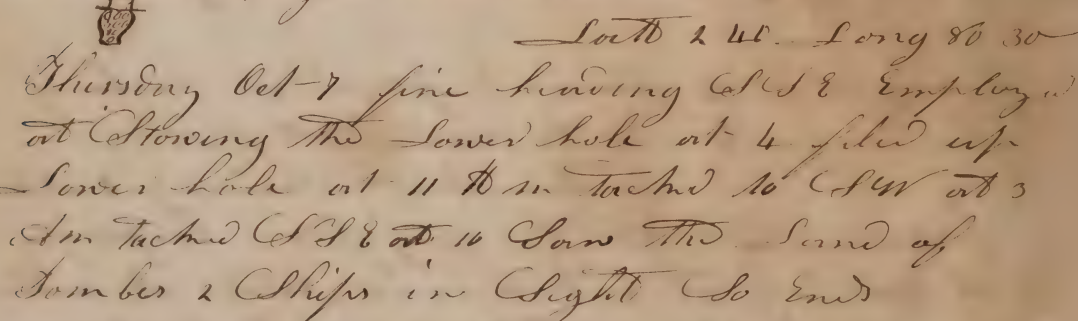 Latt 2 41 Long 80 30
Thursday Oct-7 fine heading SSE Employed
at Stowing the Lower hole at 4 filed up
Lower hole at 11 Pm tacked to SW at 3
Am tacked SSE at 10 Saw the Land of
Tombes 2 Ships in Sight So Ends